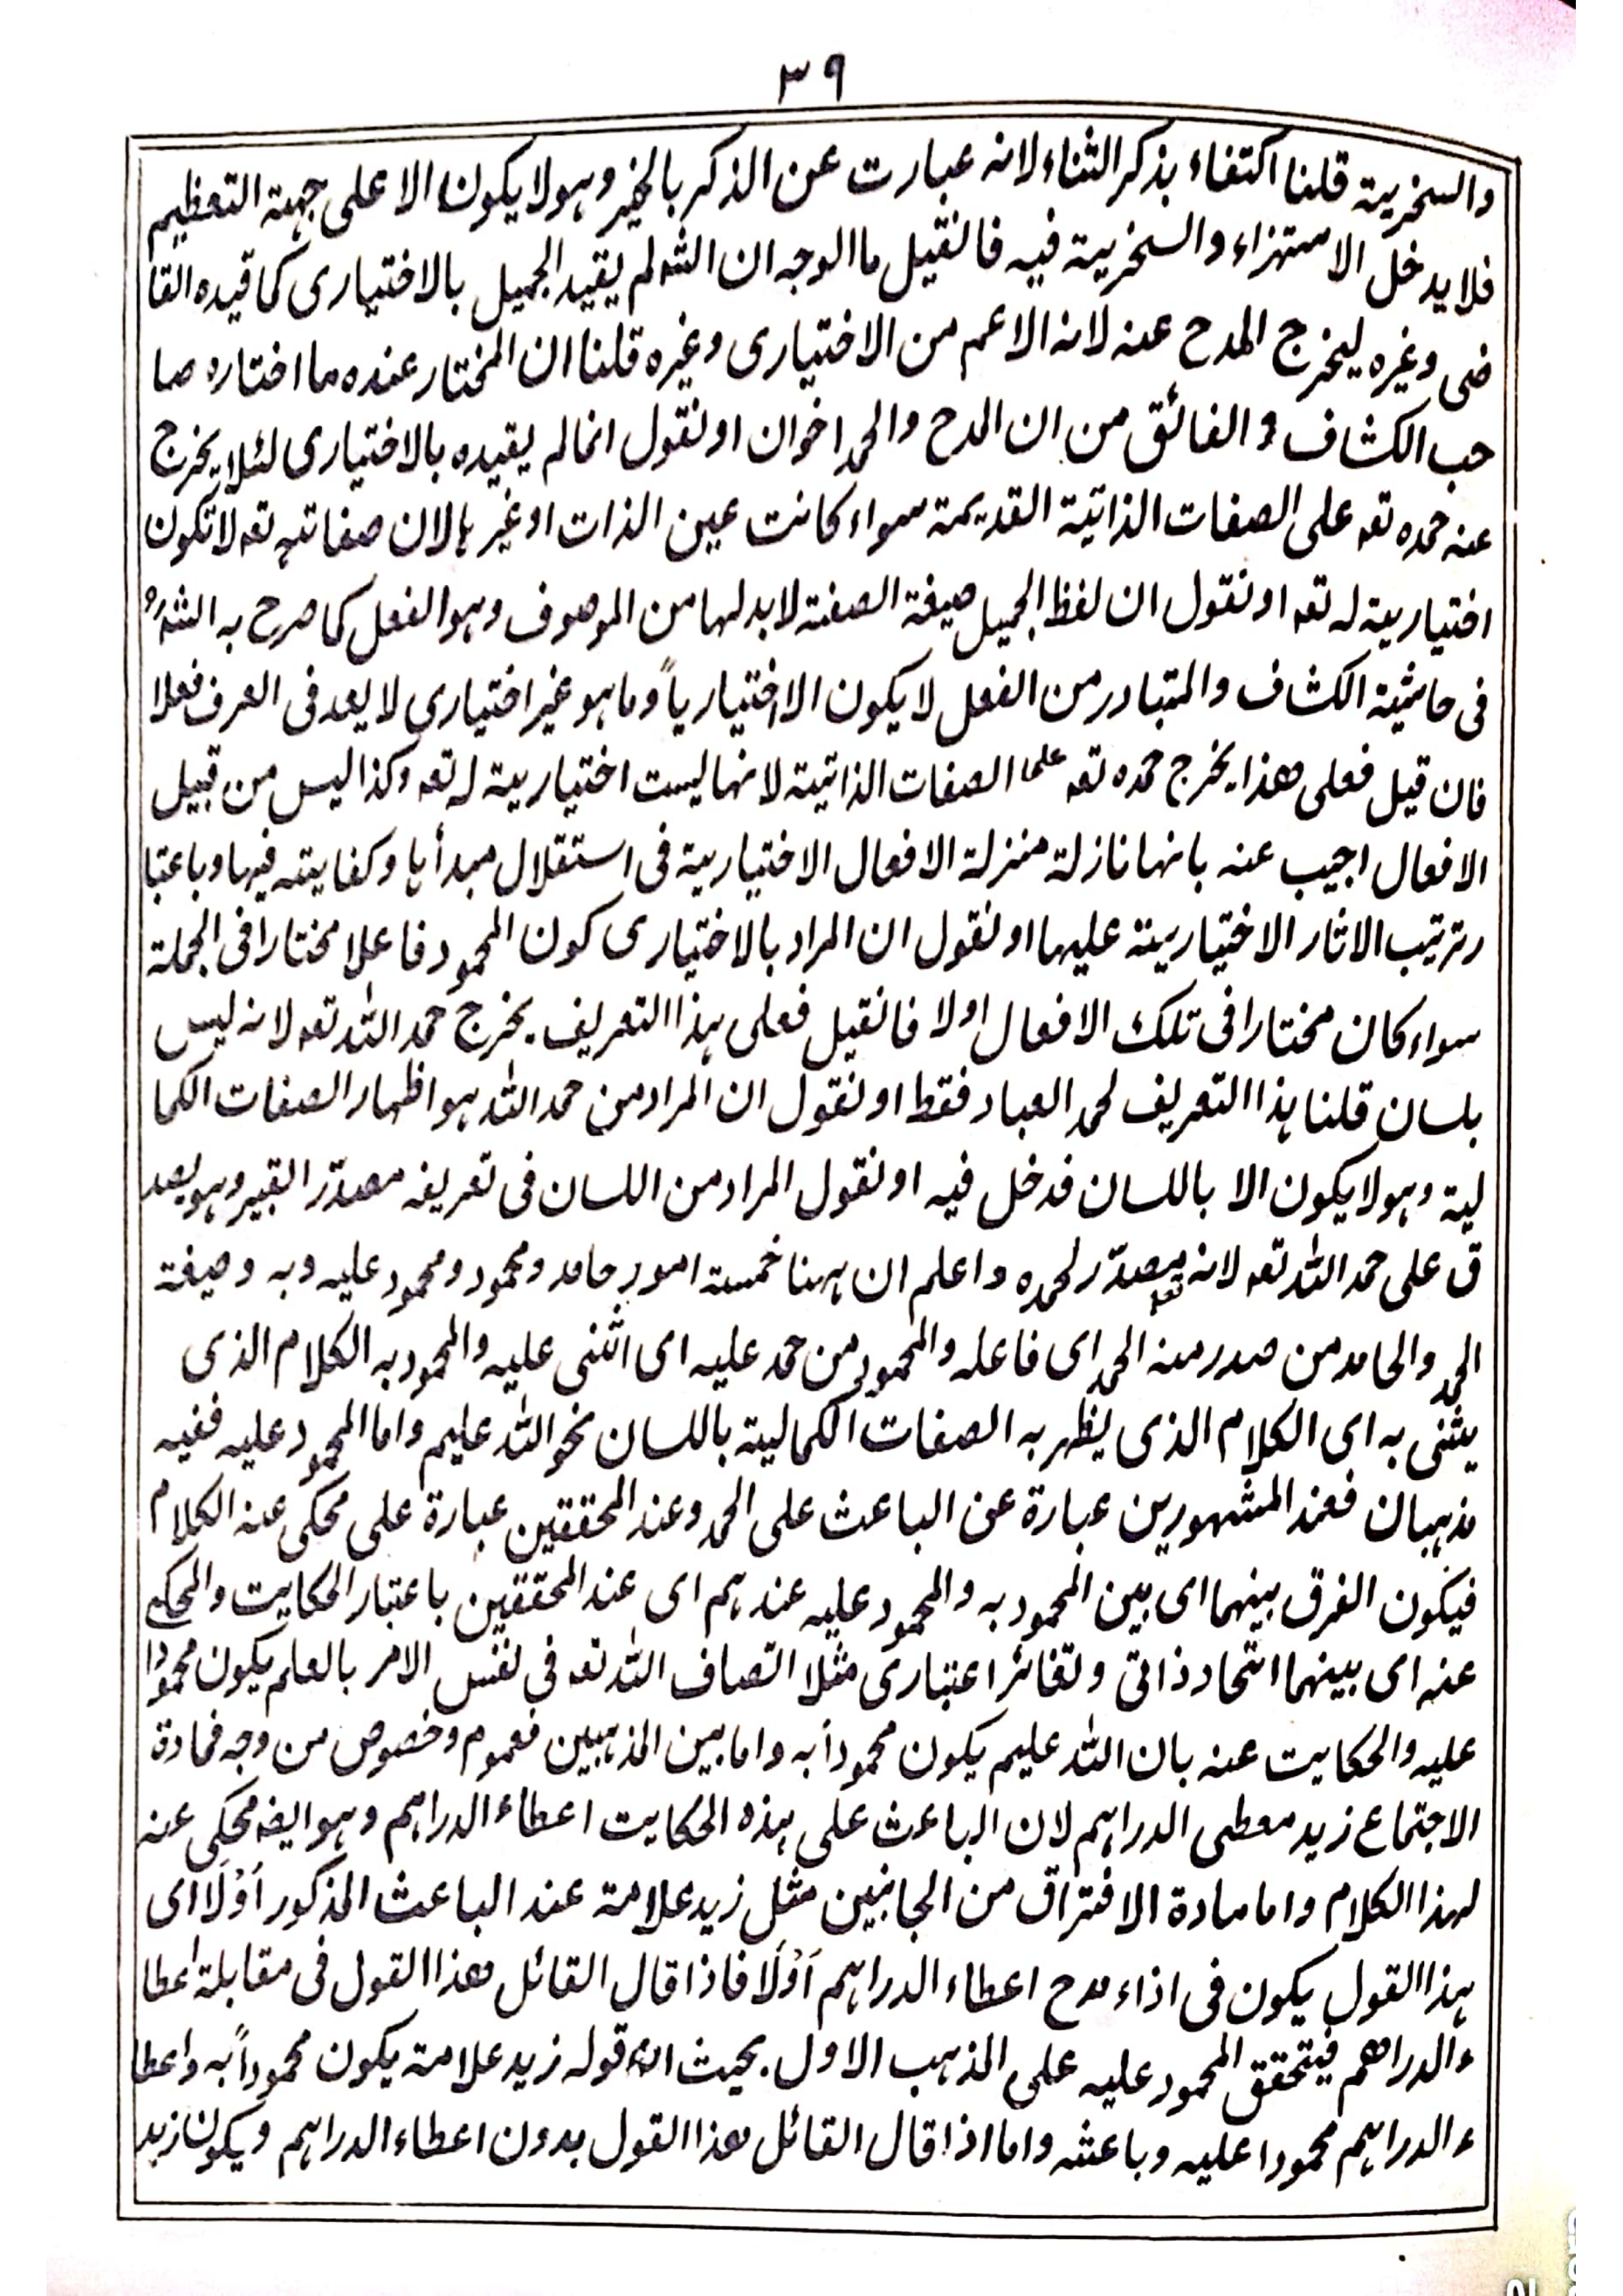 ٣٩
والسخرية قلنا اكتفاء بذكر الثناء لانه عبارت عن الذكر بالخير وهو لا يكون الا على جهة التعظيم
فلا يدخل الاستهزاء والسخرية فيه فانقيل ما الوجه ان الشه لم يقيد الجميل بالاختيارى كما قيده القا
ضى وغيره ليخرج المدح عنه لانه الاعم من الاختيارى وغيره قلنا ان المختار عنده ما اختاره صا
حب الكشاف والفائق من ان المدح والحمد اخوان او نقول انما لم يقيده بالاختيارى لئلا يخرج
عنه حمده تعه على الصفات الذاتية القديمة سواء كانت عين الذات او غيرها لان صفاته تعه لا تكون
اختيارية له تعه او نقول ان لفظ الجميل صيغة الصفة لا بد لها من الموصوف وهو الفعل كما صرح به الشه
فى حاشية الكشاف والمتبادر من الفعل لا يكون الا اختيارياً وما هو غير اختيارى لا يعد فى العرف فعلا
فان قيل فعلى هذا يخرج حمده تعه على الصفات الذاتية لانها ليست اختيارية له تعه وكذا ليس من قبيل
الافعال اجيب عنه بانها نازلة منزلة الافعال الاختيارية فى استقلال مبدأها وكفايته فيها وباعتبا
رترتيب الاثار الاختيارية عليها او نقول ان المراد بالاختيارى كون المحمود فاعلا مختارا فى الجملة
سواء كان مختارا فى تلك الافعال اولا فانقيل فعلى هذا التعريف يخرج حمد الله تعه لانه ليس
بلسان قلنا هذا التعريف لحمد العباد فقط او نقول ان المراد من حمد الله هو اظهار الصفات الكما
لية وهو لا يكون الا باللسان فدخل فيه او نقول المراد من اللسان فى تعريفه مصدّر القبير وهو يصد
ق على حمد الله تعه لانه مصدّر لحمده واعلم ان ههنا خمسة امور حامد ومحمود ومحمود عليه وبه وصيغة
الحمد والحامد من صدر منه الحمد اى فاعله والمحمود من حمد عليه اى اثنى عليه والمحمود به الكلام الذى
يثنى به اى الكلام الذى يظهر به الصفات الكمالية باللسان نحو الله عليم واما المحمود عليه ففيه
مذهبان فعند المشهورين عبارة عن الباعث على الحمد وعند المحققين عبارة على محكى عنه الكلام
فيكون الفرق بينهما اى بين المحمود به والمحمود عليه عندهم اى عند المحققين باعتبار الحكايت والمحكى
عنه اى بينهما اتحاد ذاتى وتغائر اعتبارى مثلا اتصاف الله تعه فى نفس الامر بالعلم يكون محمودا
عليه والحكايت عنه بان الله عليم يكون محموداً به واما بين المذهبين فعموم وخصوص من وجه فمادة
الاجتماع زيد معطى الدراهم لان الباعث على هذه الحكايت اعطاء الدراهم وهو ايضه محكى عنه
لهذا الكلام واما مادة الافتراق من الجانبين مثل زيد علامة عند الباعث المذكور اَوّلًا اى
هذا القول يكون فى اذاء مدح اعطاء الدراهم اَوّلًا فاذا قال القائل هذا القول فى مقابلة اعطا
ء الدراهم فيتحقق المحمود عليه على المذهب الاول بحيث ان قوله زيد علامة يكون محموداً به واعطا
ء الدراهم محمودا عليه وباعثه واما اذا قال القائل هذا القول بدون اعطاء الدراهم ويكون زيد